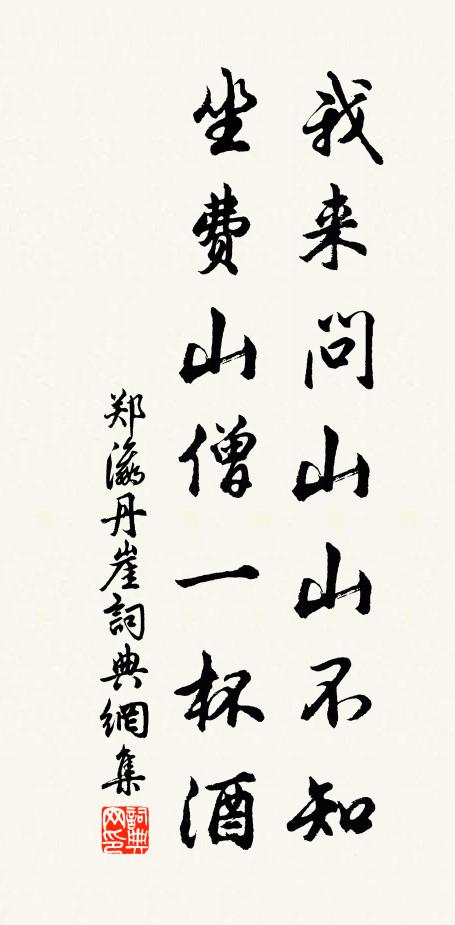 我来问山山不知
坐费山僧一杯酒
郑瀛丹崖詞典網集
詞典网印